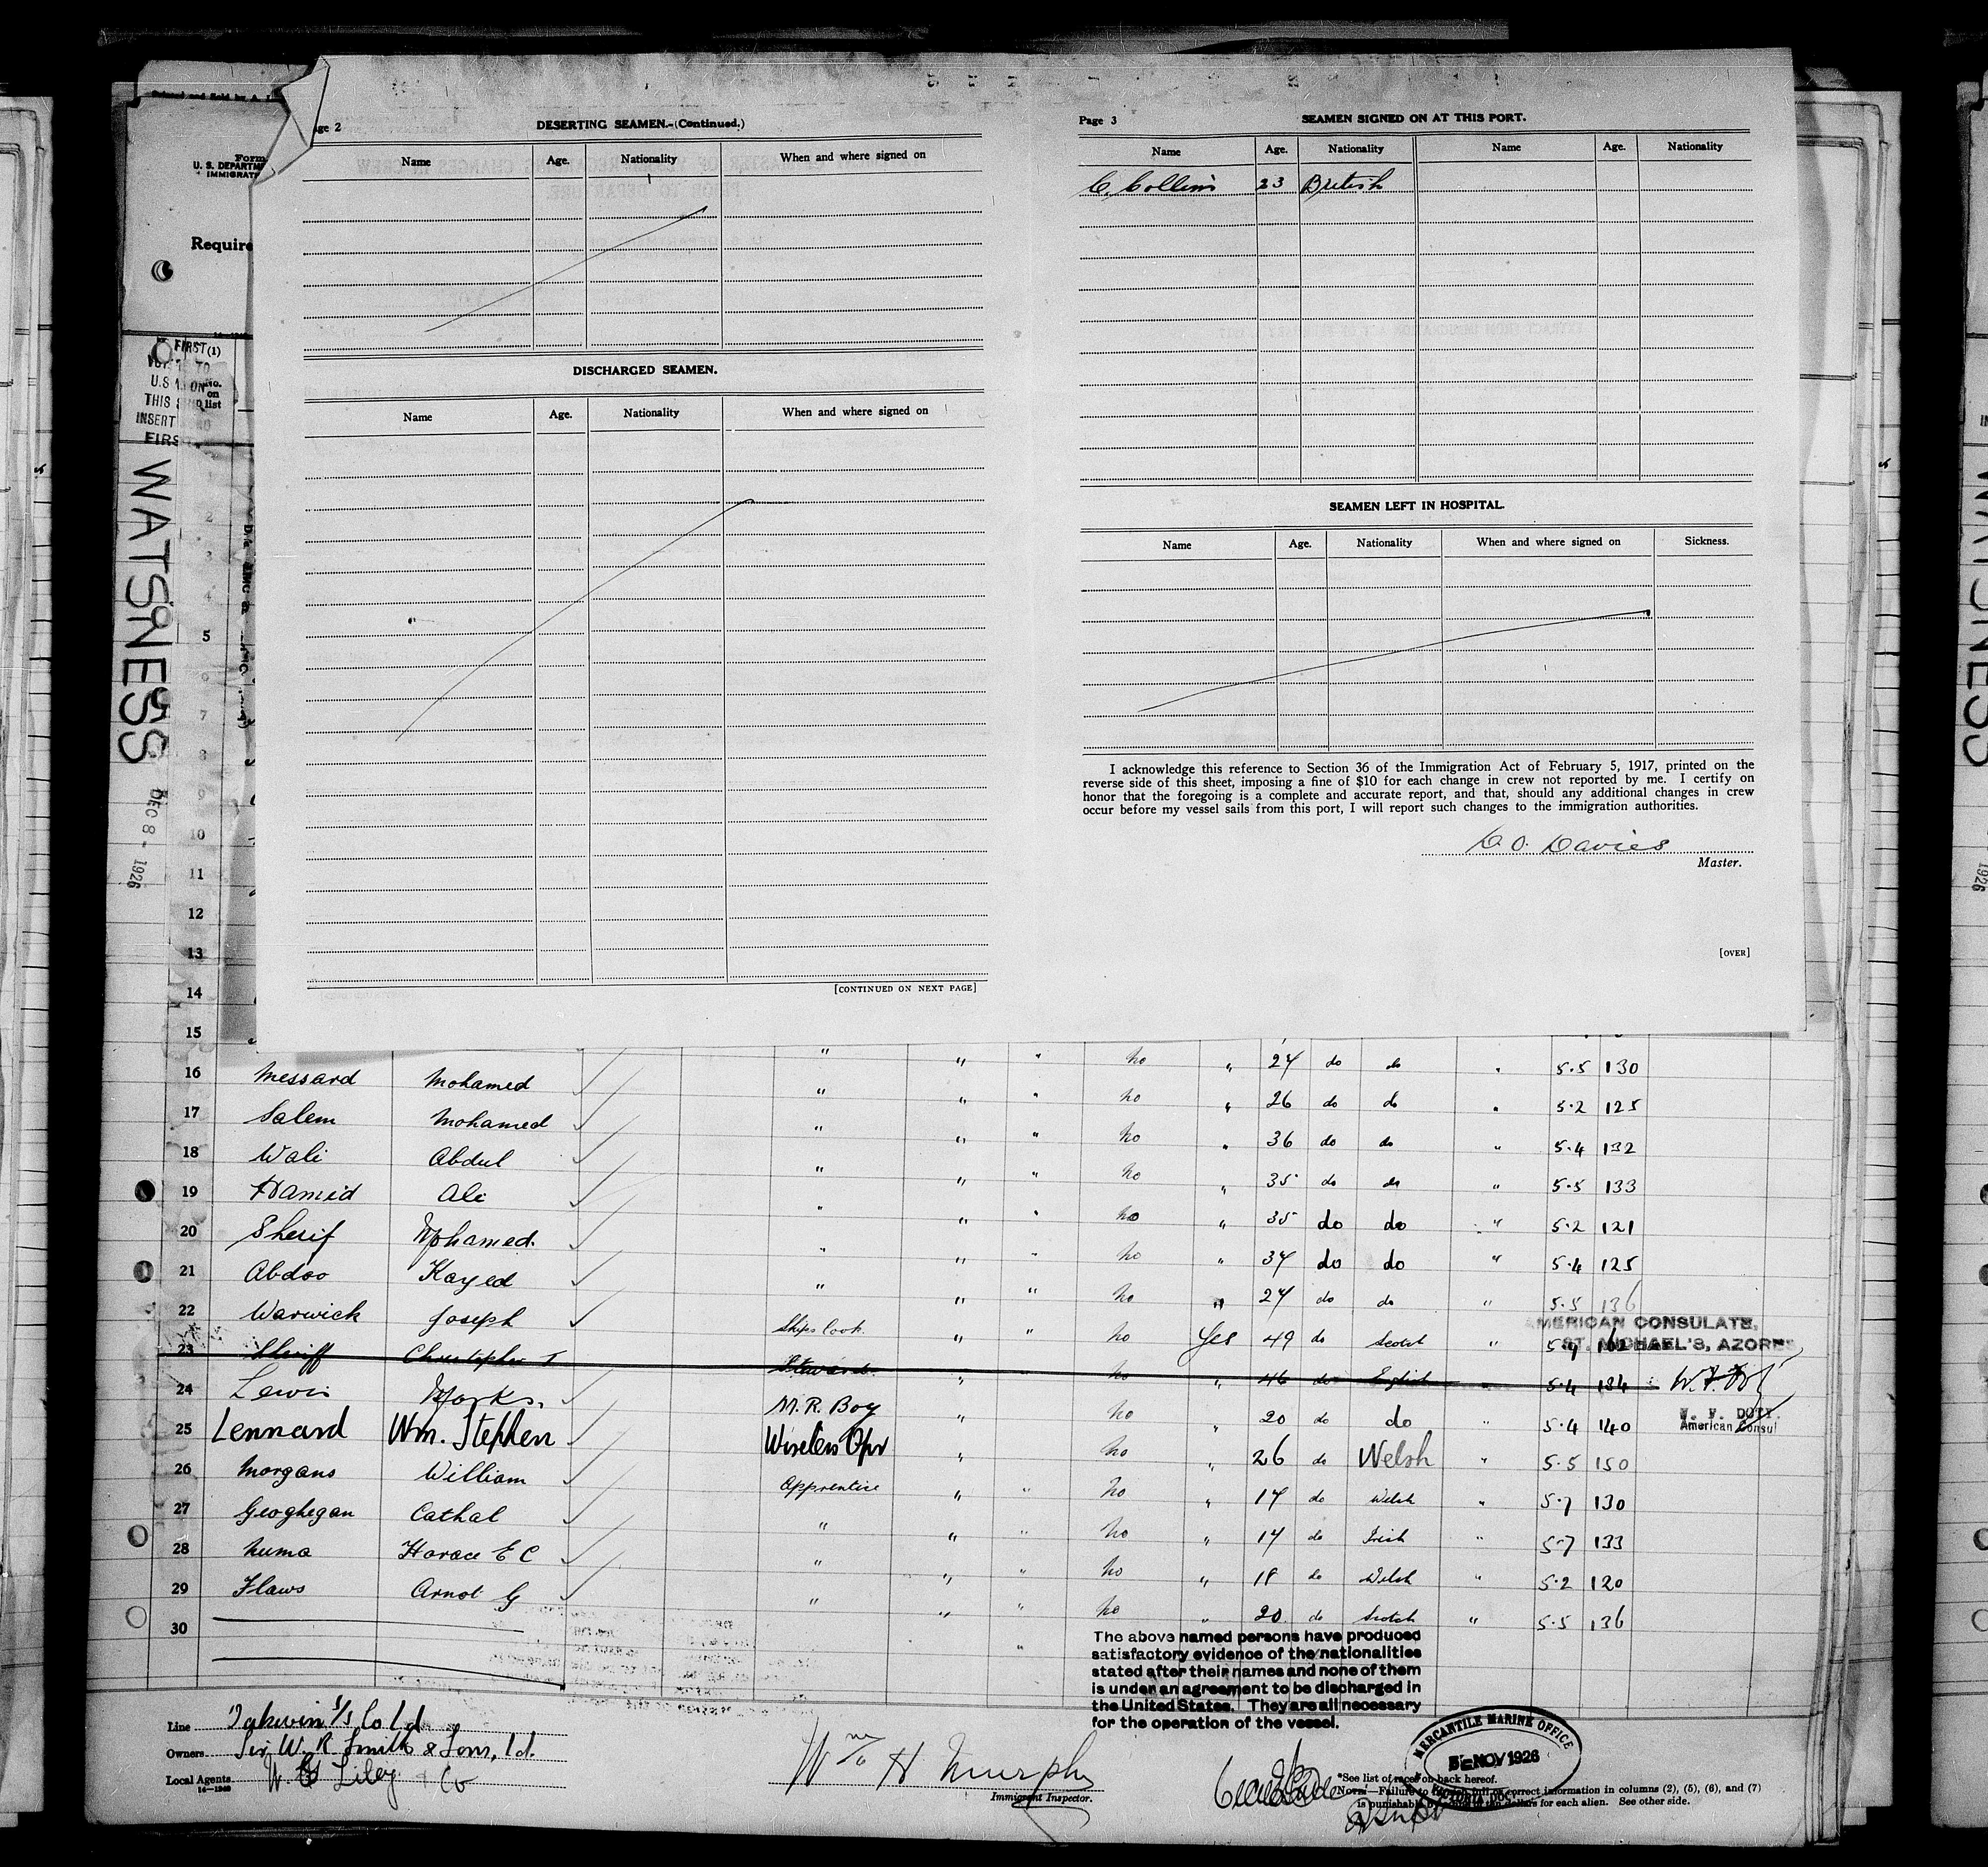 Page 2
DESERTING SEAMEN.-(Continued.)
Name Age. Nationality When and where signed on
DISCHARGED SEAMEN.
Name Age. Nationality When and where signed on
[CONTINUED ON NEXT PAGE]
Page 3
SEAMEN SIGNED ON AT THIS PORT.
Name Age. Nationality Name Age. Nationality
C. Collins 23 British
SEAMEN LEFT IN HOSPITAL.
Name Age. Nationality When and where signed on Sickness.
I acknowledge this reference to Section 36 of the Immigration Act of February 5, 1917, printed on the
reverse side of this sheet, imposing a fine of $10 for each change in crew not reported by me. I certify on
honor that the foregoing is a complete and accurate report, and that, should any additional changes in crew
occur before my vessel sails from this port, I will report such changes to the immigration authorities.
D. O. Davies
Master.
[OVER]
Form
U. S. DEPARTM
IMMIGRAT
Require
FIRST (1)
U.S.
No.
on
list
THIS
INSERT
FIRS
WATSNESS
DEC 8 - 1926
5
7
8
9
10
11
12
13
14
15
16 Messard Mohamed " " " no " 24 do do " 5.5 130
17 Salem Mohamed " " " no " 26 do do " 5.2 125
18 Wali Abdul " " " no " 36 do do " 5.4 132
19 Hamid Ali " " " no " 35 do do " 5.5 133
20 Sherif Mohamed. " " " no " 35 do do " 5.2 121
21 Abdoo Kayed " " " no " 34 do do " 5.4 125
22 Warwick Joseph " " " no " 24 do do " 5.5 136
Ships Cook " " no Yes 49 do Scotch "
AMERICAN CONSULATE,
ST. MICHAEL'S, AZORES
23 Sheriff Christopher T Steward " no " 46 do English " 5.4 184
24 Lewis Yorks. M.R. Boy " no " 20 do do " 5.4 140
W. F. DOTY.
American Consul
25 Lennard Wm. Stephen Wireless Opr " no " 26 do Welsh " 5.5 150
26 Morgans William Apprentice " " no " 17 do Welsh " 5.7 130
27 Geoghegan Cathal " " " no " 17 do Irish " 5.7 133
28 Numa Horace E C " " " no " 18 do Welsh " 5.2 120
29 Flaws Arnot G " " " no " 20 do Scotch " 5.5 136
30
The above named persons have produced
satisfactory evidence of the nationalities
stated after their names and none of them
is under an agreement to be discharged in
the United States. They are all necessary
for the operation of the vessel.
Line S/S Co Ld
Owners Sir W. R. Smith & Sons, Ld.
Local Agents W. Liley & Co
Wm H Murphy
Immigrant Inspector.
MERCANTILE MARINE OFFICE
5 NOV 1926
*See list of races on back hereof.
NOTE.—Failure to correct information in columns (2), (5), (6), and (7)
is punishable by dollars for each alien. See other side.